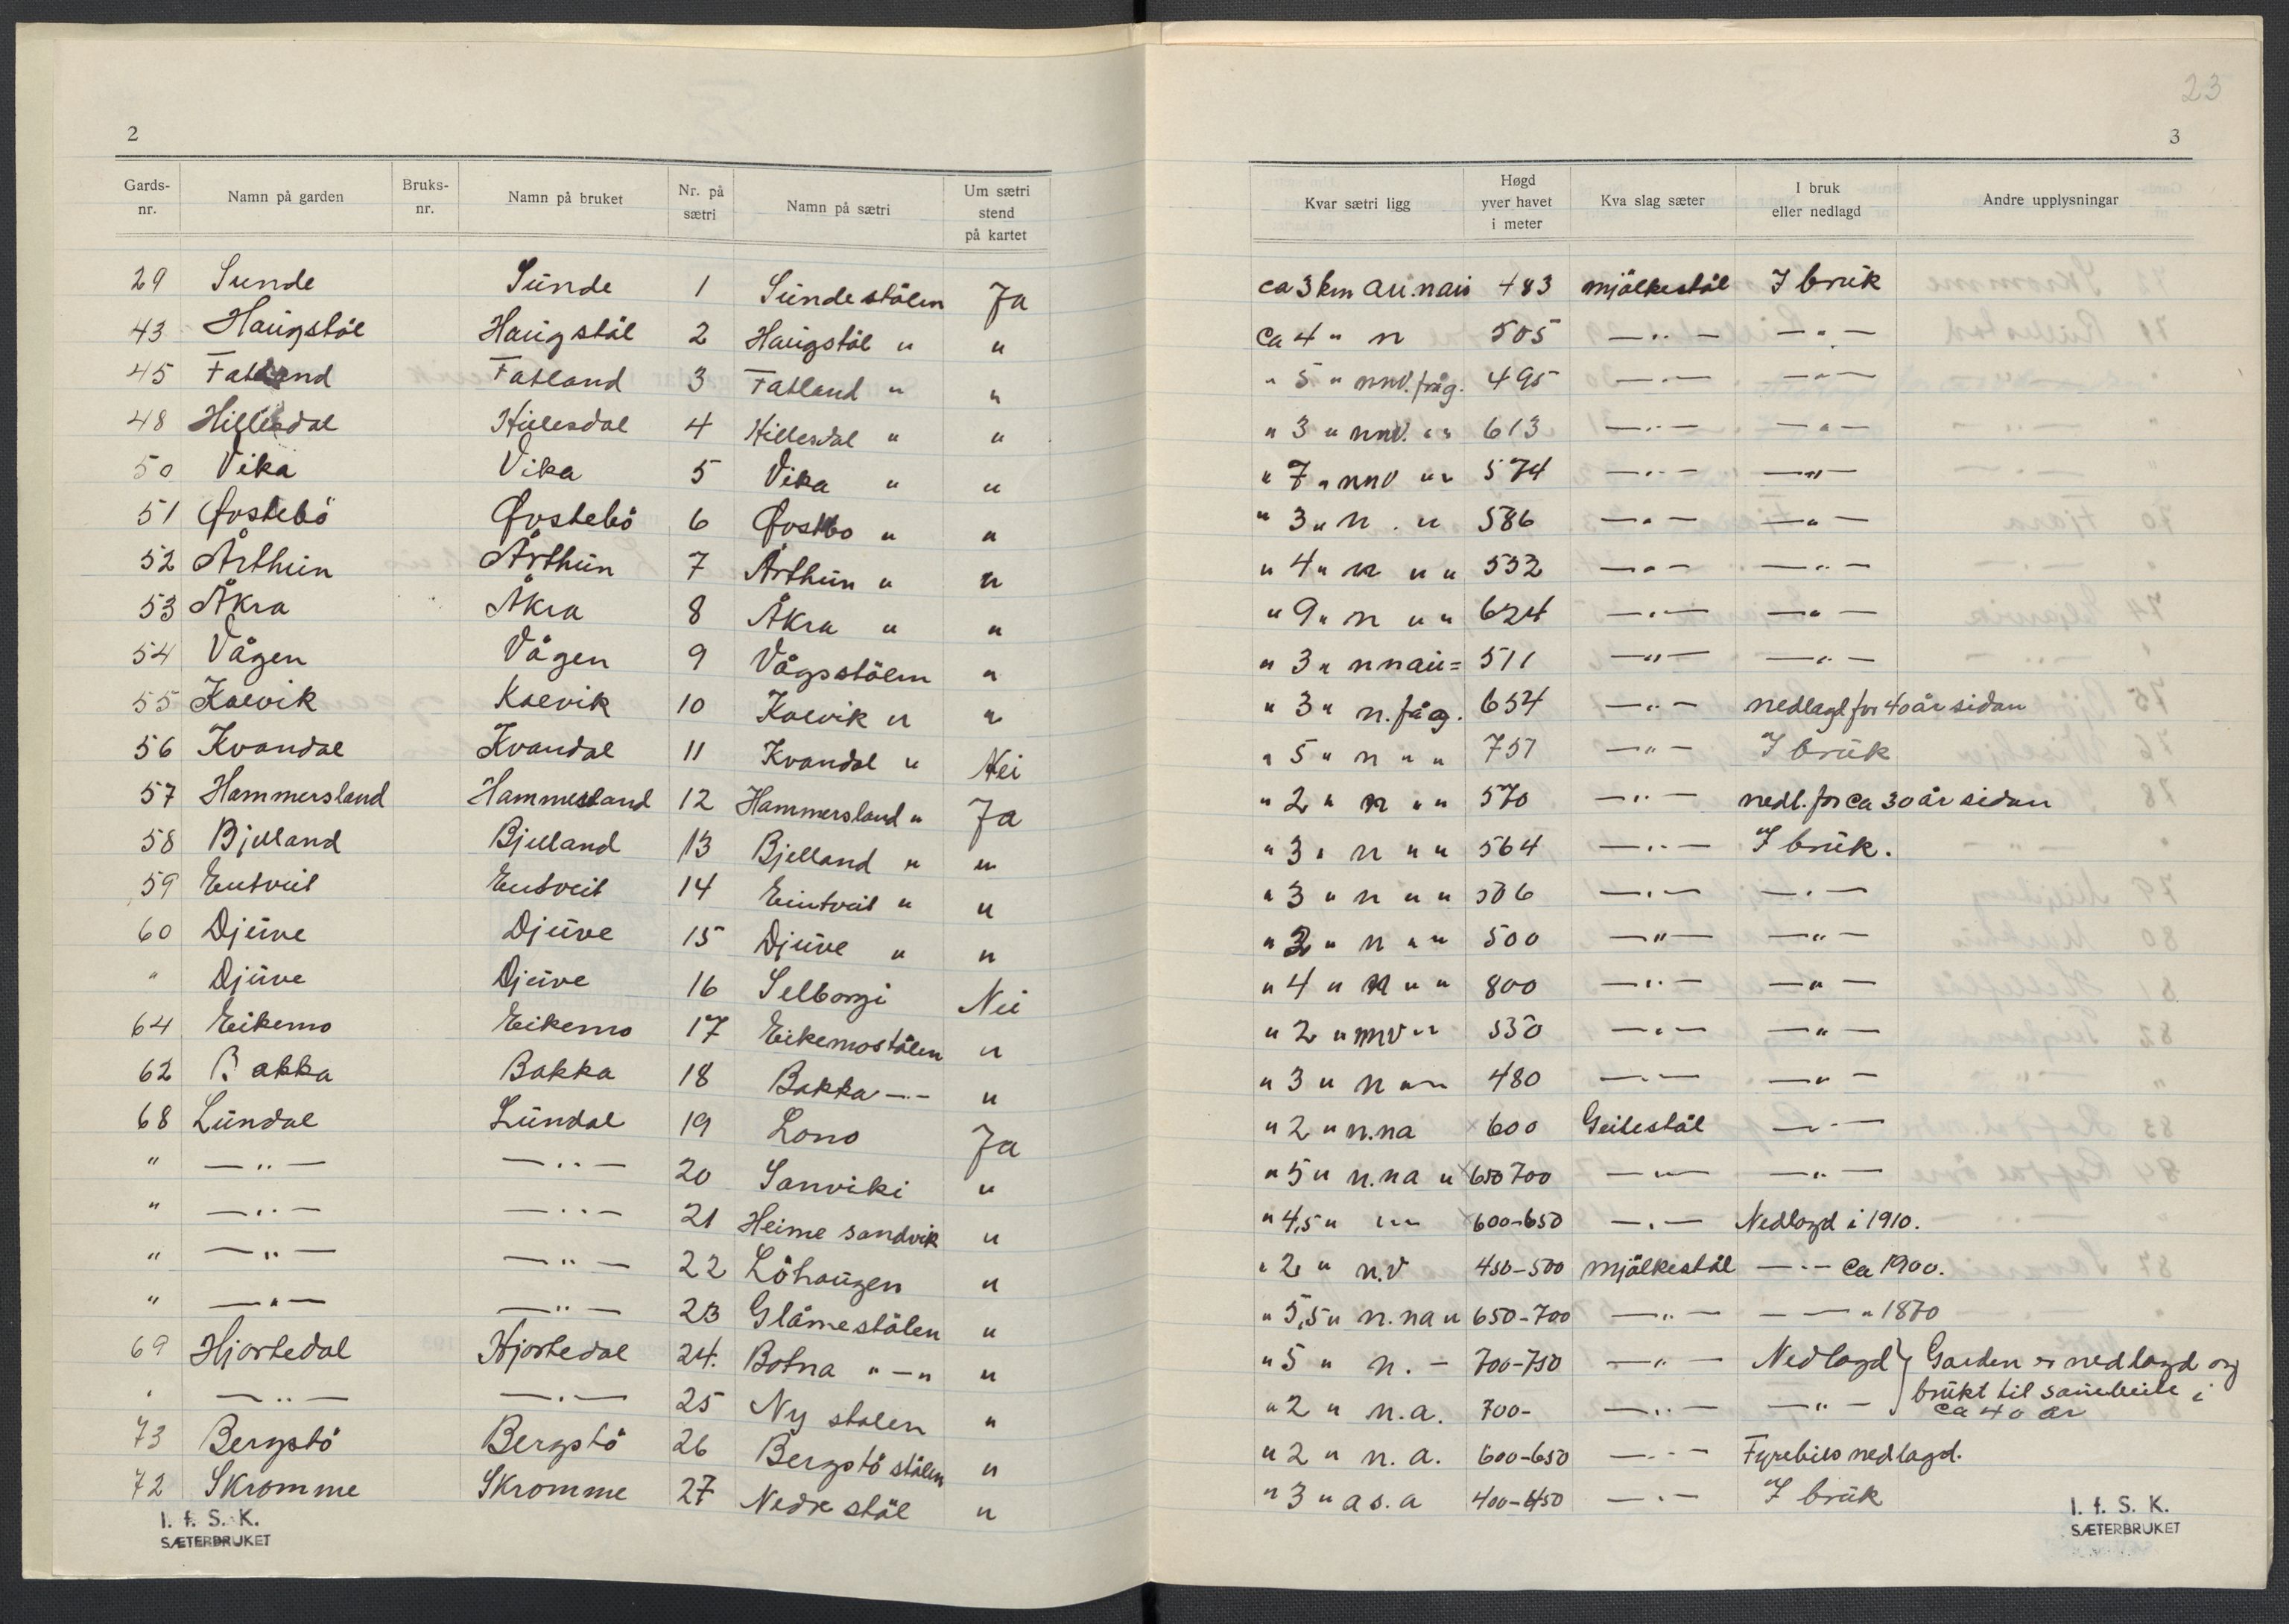 2
Gards-nr. Namn på garden Bruks-nr. Namn på bruket Nr. på sætri Namn på sætri Um sætri stend på kartet
29 Sunde Sunde 1 Sundestölen Ja
43 Haugstöl Haugstöl 2 Haugstöl " "
45 Fatland Fatland 3 Fatland " "
48 Hillesdal Hillesdal 4 Hillesdal " "
50 Vika Vika 5 Vika " "
51 Øvstebö Øvstebö 6 Øvstbo " "
52 Årthun Årthun 7 Årthun " "
53 Åkra Åkra 8 Åkra " "
54 Vågen Vågen 9 Vågsstölen "
55 Kalvik Kalvik 10 Kalvik " "
56 Kvandal Kvandal 11 Kvandal " Nei
57 Hammersland Hammersland 12 Hammersland " Ja
58 Bjelland Bjelland 13 Bjelland " "
59 Eintveit Eintveit 14 Eintveit " "
60 Djuve Djuve 15 Djuve " "
" Djuve Djuve 16 Selborgi Nei
64 Eikemo Eikemo 17 Eikemostölen "
62 Bakka Bakka 18 Bakka -"- "
68 Lundal Lundal 19 Lono Ja
" —"— —"— 20 Sanviki "
" —"— —"— 21 Heime sandvik "
" —"— —"— 22 Löhaugen "
" —"— —"— 23 Glåmestölen "
69 Hjortedal Hjortedal 24. Botna "—" "
" —"— —"— 25 Ny stolen "
73 Bergstö Bergstö 26 Bergstö stölen "
72 Skromme Skromme 27 Nedre stöl "
I. f. S. K.
SÆTERBRUKET
23
3
Kvar sætri ligg Høgd yver havet i meter Kva slag sæter I bruk eller nedlagd Andre upplysningar
ca 3 km au.nau 483 mjölkestöl I bruk
ca 4 " n 505 —"— —"—
" 5 " nnv. fråg. 495 —"— —"—
" 3 " nnv. " " 613 —"— —"—
" 7 " nnv " " 574 —"— —"—
" 3 " n . " 586 —"— —"—
" 4 " n " " 532 —"— —"—
" 9 " n " " 624 —"— —"—
" 3 " nnau= 511 —"— —"—
" 3 " n. fåg. 654 —"— nedlagd for 40 år sidan
" 5 " n " " 751 —"— I bruk
" 2 " n " " 570 —"— nedl. for ca 30 år sidan
" 3 " n " " 564 —"— I bruk.
" 3 " n " " 506 —"— —"—
" 2 " n " " 500 —"— —"—
" 4 " n " " 800 —"— —"—
" 2 " nnv " 550 —"— —"—
" 3 " n " " 480 —"— —"—
" 2 " n.na ×600 Geitestöl —"—
" 5 " n.na " ×650 700 —"— —"—
" 4,5 " " " ×600-650 —"— Nedlagd i 1910.
" 2 " n.v 450-500 mjölkestöl —"— ca 1900.
" 5,5 " n.na " 650-700 —"— —— " 1870
" 5 " n. - 700-750 —"— Nedlagd } Garden er nedlagd og
brukt til sauebeite i
" 2 " n.a. 700- —"— —"— ca 40 år
" 2 " n. a. 600-650 —"— Fyrebils nedlagd.
" 3 " a s. a 400-450 —"— I bruk
I. f. S. K.
SÆTERBRUKET